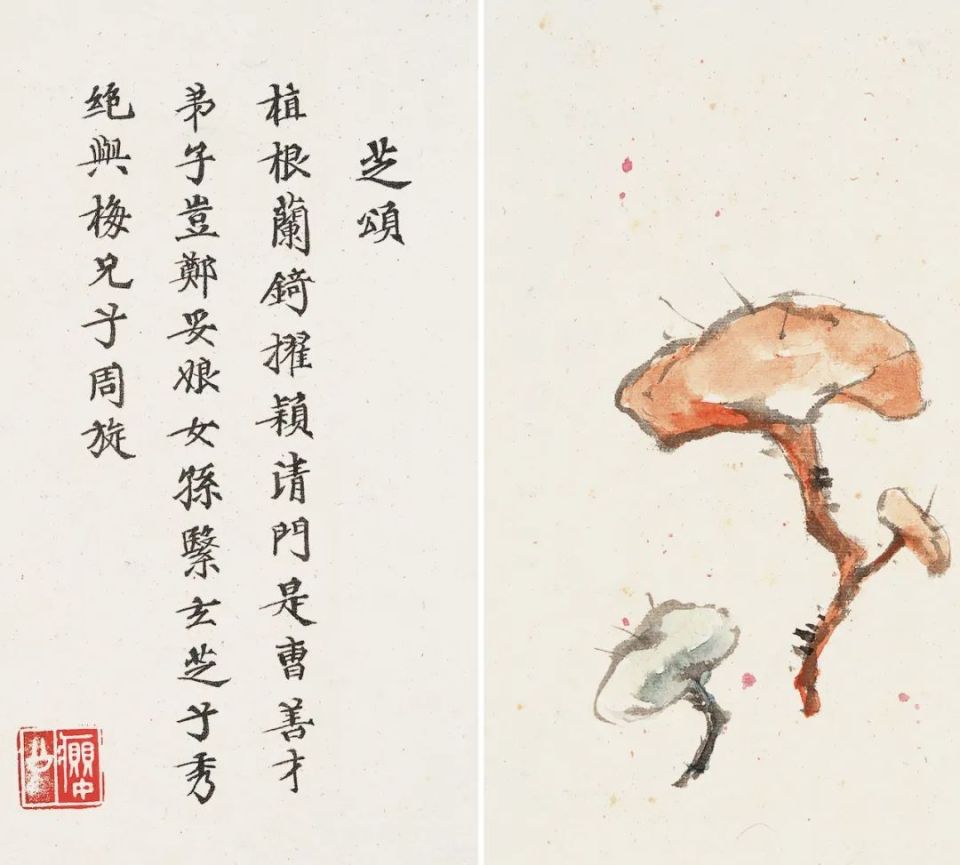 芝頌
植根蘭錡擢穎清門是曹善才
弟子豈鄭妥娘女孫繄玄芝兮秀
絶與梅兄兮周旋